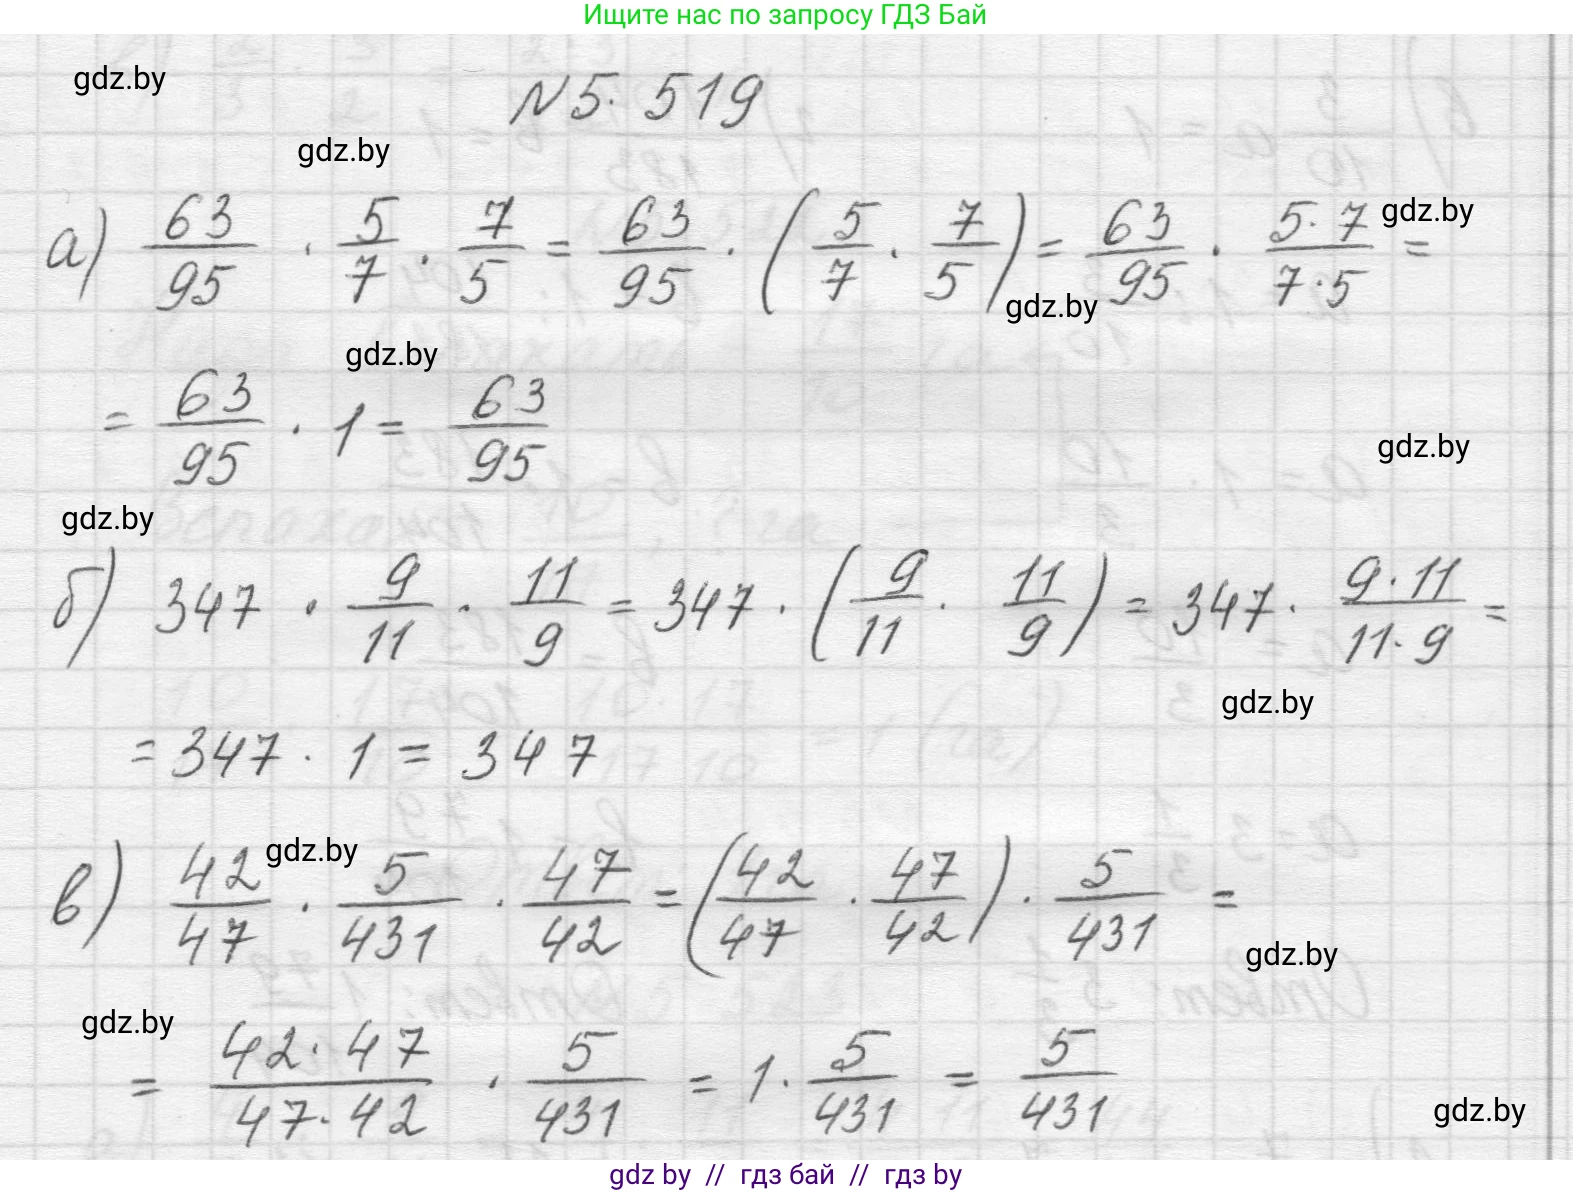 Ищите нас по запросу ГДЗ Бай
gdz.by
№5. 519
gdz.by
а) 63/95 · 5/7 · 7/5 = 63/95 · (5/7 · 7/5) = 63/95 · 5·7/7·5 =
gdz.by
gdz.by
= 63/95 · 1 = 63/95
gdz.by
gdz.by
gdz.by
б) 347 · 9/11 · 11/9 = 347 · (9/11 · 11/9) = 347 · 9·11/11·9 =
gdz.by
= 347 · 1 = 347
gdz.by
в) 42/47 · 5/431 · 47/42 = (42/47 · 47/42) · 5/431 =
gdz.by
gdz.by
= 42·47/47·42 · 5/431 = 1 · 5/431 = 5/431
gdz.by
gdz by // гдз бай // гдз by